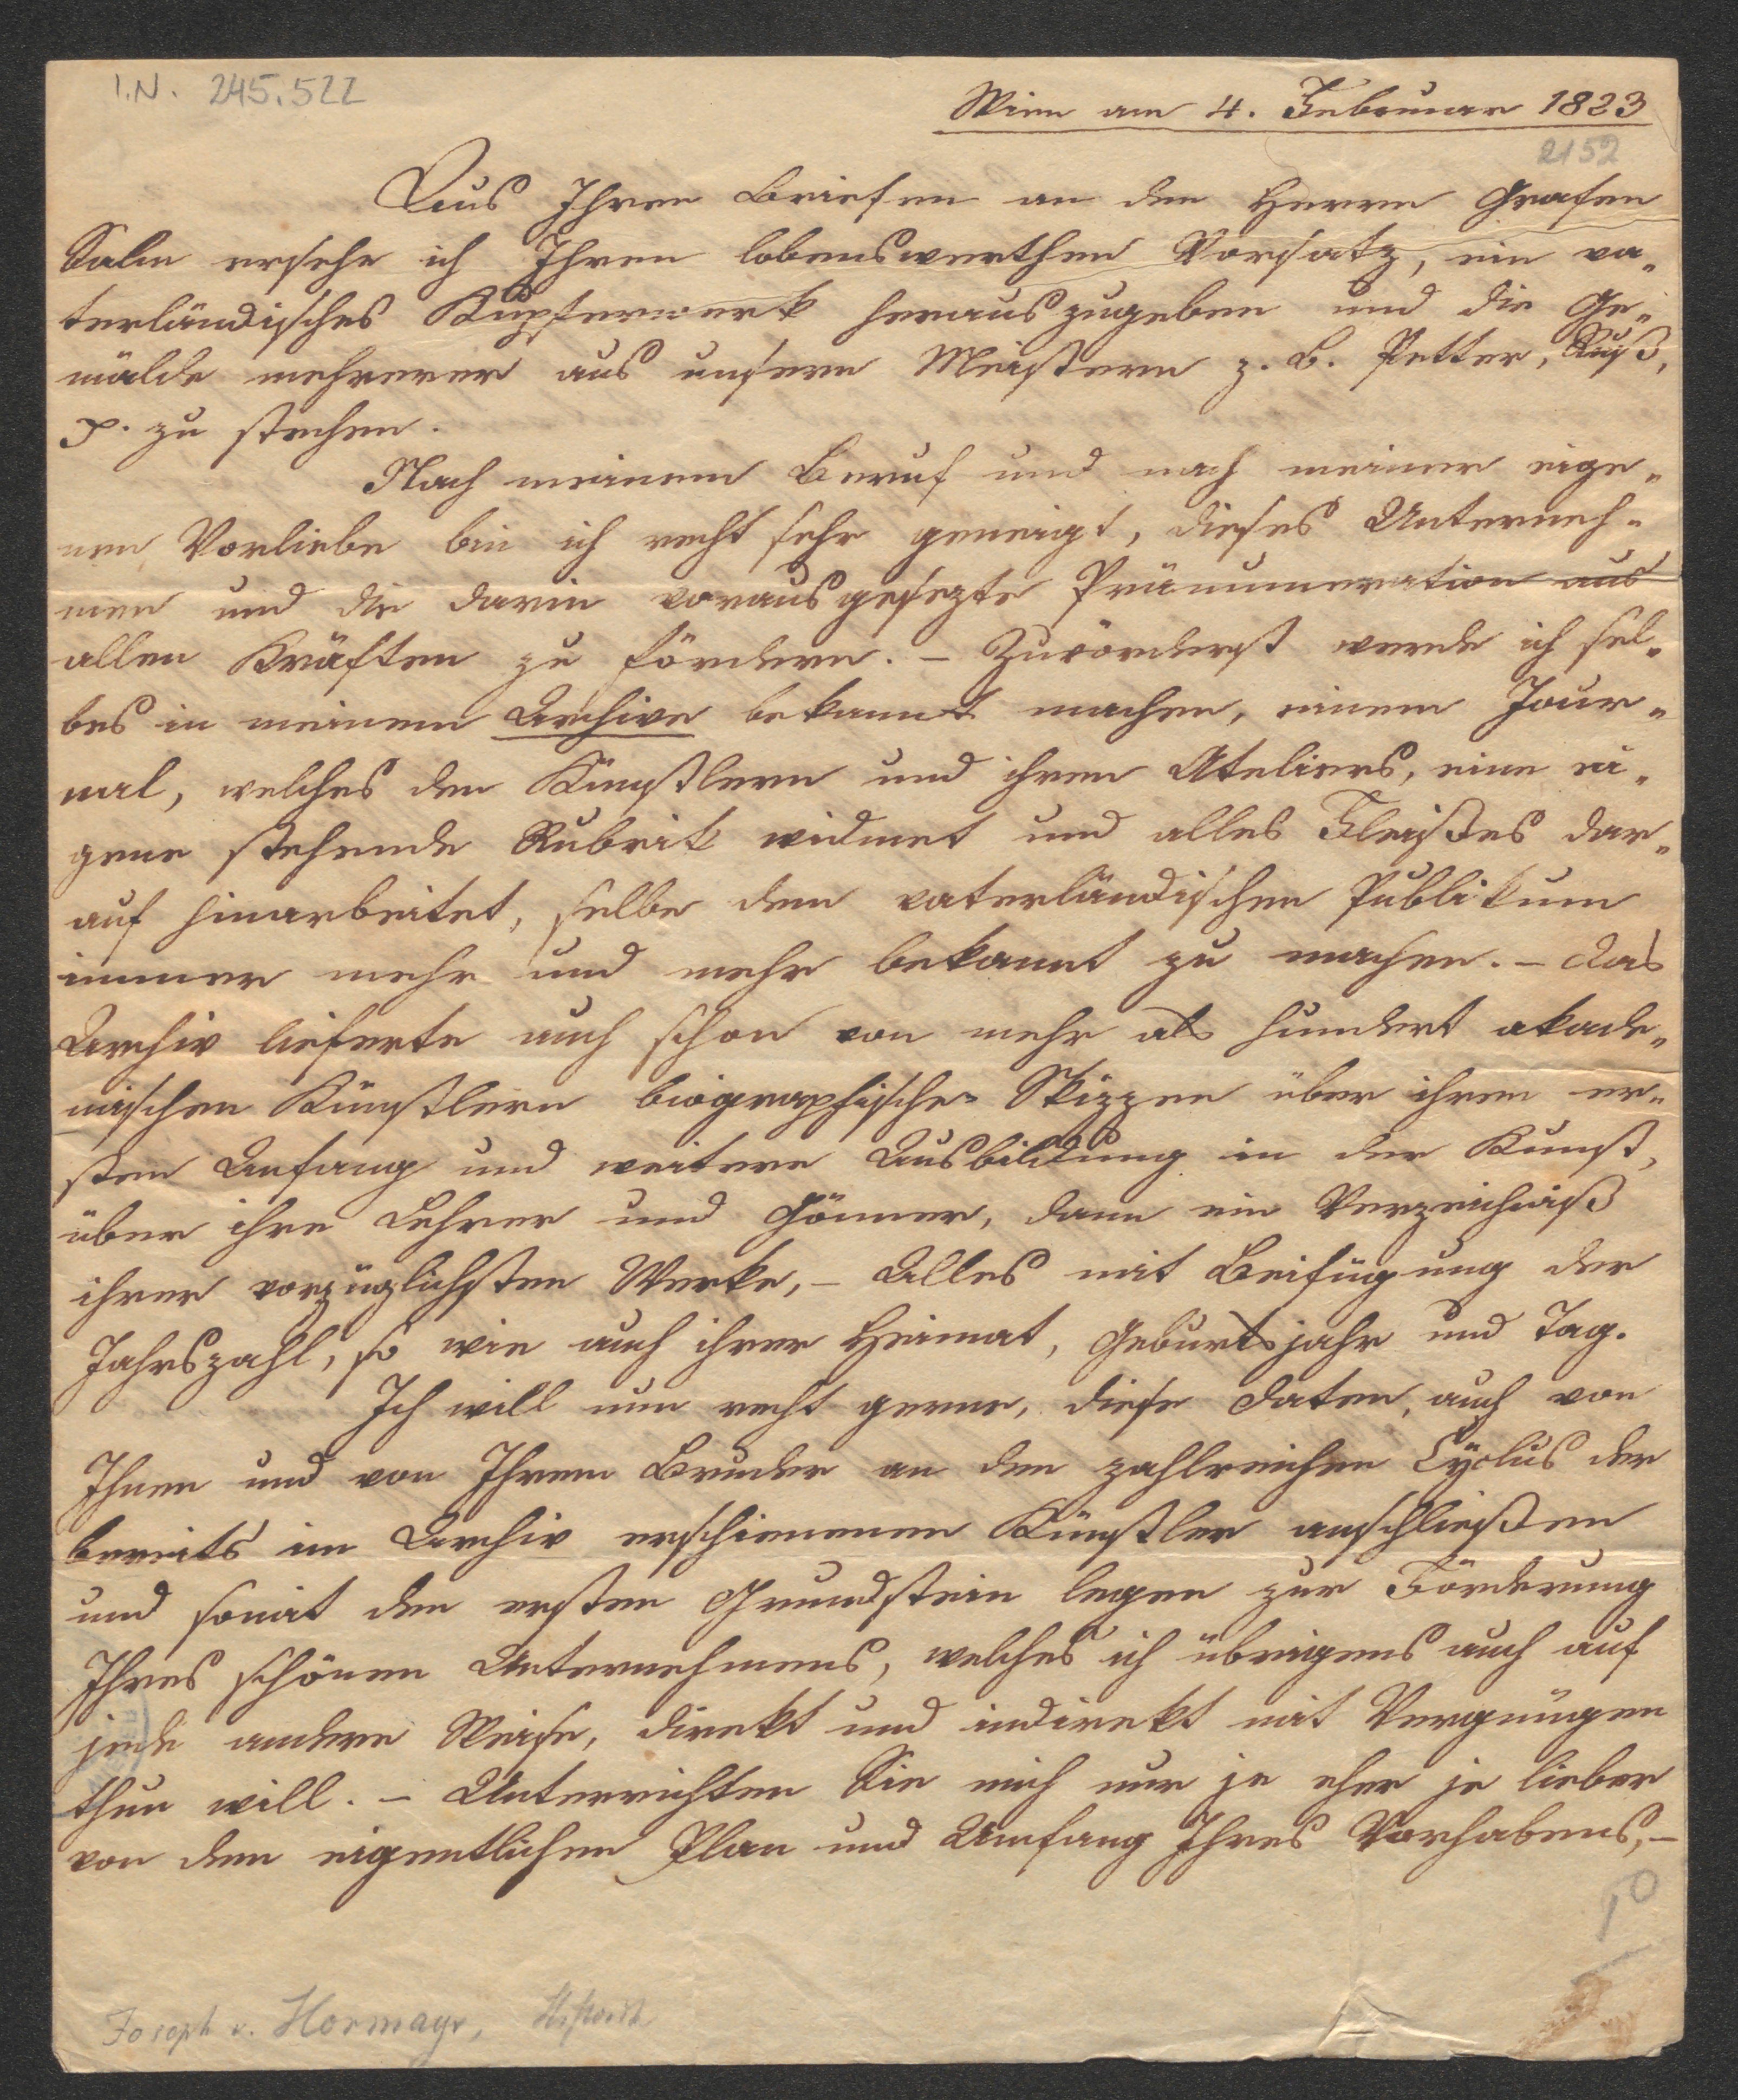 I.N. 245.522
Wien am 4. Februar 1823
2152
Aus Ihren Briefen an den Herrn Grafen
Salm ersehe ich Ihren lobenswerthen Vorsatz, ein va„
terländisches Kupferwerk herauszugeben und die Ge„
mälde mehrerer aus unsern Meistern z. B. Petter, Ruß,
zu stechen.
Nach meinem Beruf und nach meiner eige„
nen Vorliebe bin ich recht sehr geneigt, dieses Unterneh„
men und die darin vorausgesezte Pränumeration aus
allen Kräften zu fördern. – Zuvörderst werde ich sel„
bes in meinem Archive bekannt machen, einem Jour„
nal, welches den Künstlern und ihren Ateliers, eine ei„
gene stehende Rubrik widmet und alles Fleißes dar„
auf hinarbeitet, selbe dem vaterländischen Publikum
immer mehr und mehr bekannt zu machen. – Das
Archiv lieferte auch schon von mehr als hundert akade„
mischen Künstlern biographische Skizzen über ihren er„
sten Anfang und weitere Ausbildung in der Kunst,
über ihre Lehrer und Gönner, dann ein Verzeichniß
ihrer vorzüglichsten Werke, – Alles mit Beifügung der
Jahrszahl, so wie auch ihrer Heimat, Geburtsjahr und Tag.
Ich will nun recht gerne, diese Daten, auch von
Ihnen und von Ihrem Bruder an den zahlreichen Cyclus der
bereits im Archiv erschienenen Künstler anschließen
und somit den ersten Grundstein legen zur Förderung
Ihres schönen Unternehmens, welches ich übrigens auch auf
jede andere Weise, direkt und indirekt mit Vergnügen
thun will. – Unterrichten Sie mich nur je eher je lieber
von dem eigentlichen Plan und Umfang Ihres Vorhabens, –
Joseph v. Hormayr, Historik